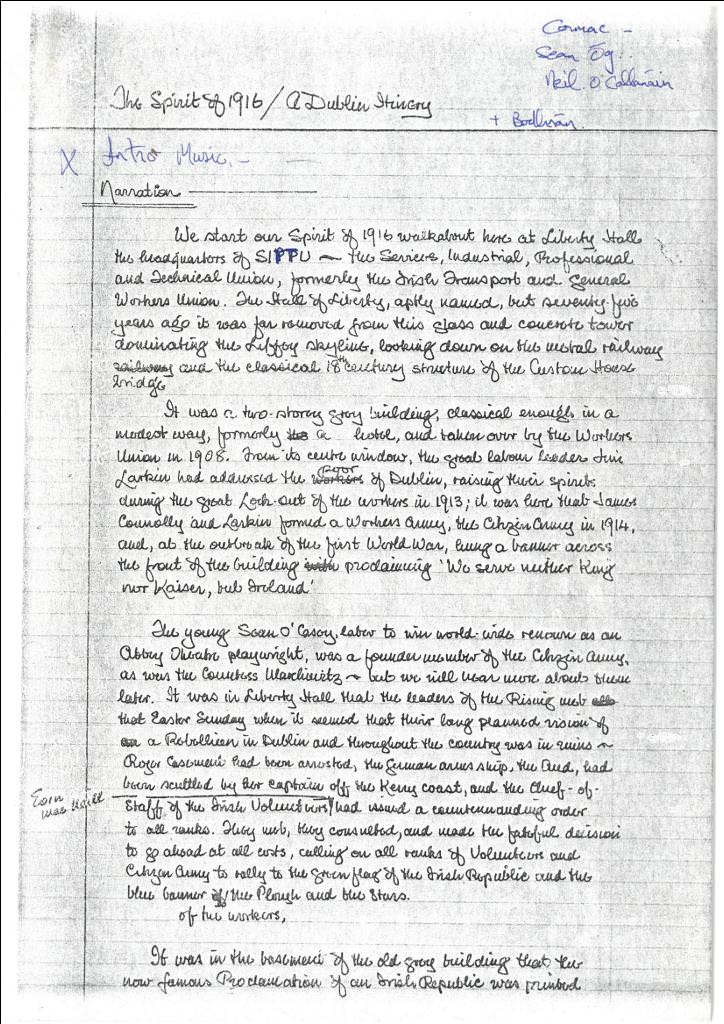 Cormac -
Sean Óg..
Neil O'Callanáin
+ Bodhrán.
The Spirit of 1916 / A Dublin Itinery
X Intro Music. -
Narration
We start our Spirit of 1916 walkabout here at Liberty Hall
the headquarters of SIPTU - the Services, Industrial, Professional
and Technical Union, formerly the Irish Transport and General
Workers Union. The Hall of Liberty, aptly named, but seventy-five
years ago it was far removed from this glass and concrete tower
dominating the Liffey skyline, looking down on the metal railway
railway and the classical 18th century structure of the Custom House
bridge
It was a two-storey grey building, classical enough in a
modest way, formerly the a hotel, and taken over by the Workers
Union in 1908. From its centre window, the great labour leader Jim
Larkin had addressed the workers poor of Dublin, raising their spirits
during the great Lock-out of the workers in 1913; it was here that James
Connolly and Larkin formed a Workers Army, the Citizen Army in 1914,
and, at the outbreak of the first World War, hung a banner across
the front of the building with proclaiming 'We serve neither King
nor Kaiser, but Ireland'
The young Sean O'Casey, later to win world-wide renown as an
Abbey Theatre playwright, was a founder member of the Citizen Army,
as was the Countess Markievitz - but we will hear more about them
later. It was in Liberty Hall that the leaders of the Rising met
that Easter Sunday when it seemed that their long planned vision of
a Rebellion in Dublin and throughout the country was in ruins -
Roger Casement had been arrested, the German arms ship, the Aud, had
been scuttled by her captain off the Kerry coast, and the Chief-of-
Eoin MacNeill
Staff of the Irish Volunteers had issued a countermanding order
to all ranks. They met, they consulted, and made the fateful decision
to go ahead at all costs, calling on all ranks of Volunteers and
Citizen Army to rally to the green flag of the Irish Republic and the
blue banner of the Plough and the Stars.
of the workers,
It was in the basement of the old grey building that the
now famous Proclamation of an Irish Republic was printed